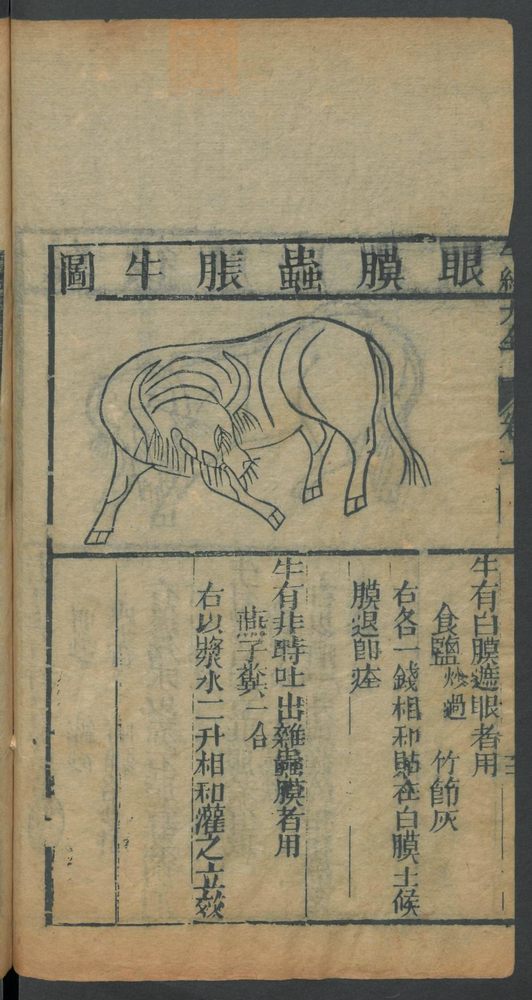 眼膜蟲脹牛圖
牛有白膜遮眼者用
食鹽炒過 竹節灰
右各一錢相和貼在白膜土候
膜退即痊
牛有非時吐出雜蟲膜者用
燕子糞一合
右以漿水二升相和灌之立效